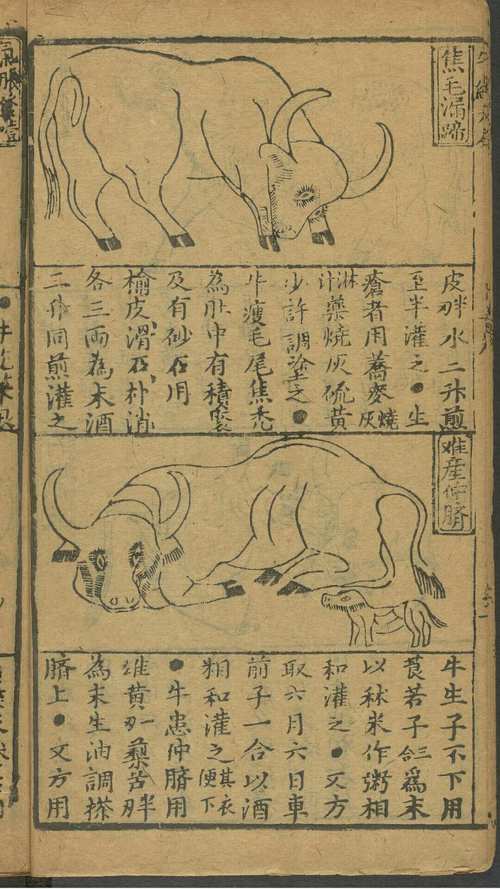 焦毛漏蹄
皮水二升煎
至半灌之●生
瘡者用蕎麥燒灰
淋汁藥燒灰硫黄
少許調塗之●
牛瘦毛尾焦禿
為肚中有積聚
及有砂石用
榆皮滑石朴消
各三兩為末酒
二升同煎灌之
难產仲臍
牛生子不下用
莨若子三合為末
以秫米作粥相
和灌之●又方
取六月六日車
前子一合以酒
相和灌之其衣便下
●牛患仲臍用
雄黄一藜半
為末生油調搽
臍上●又方用